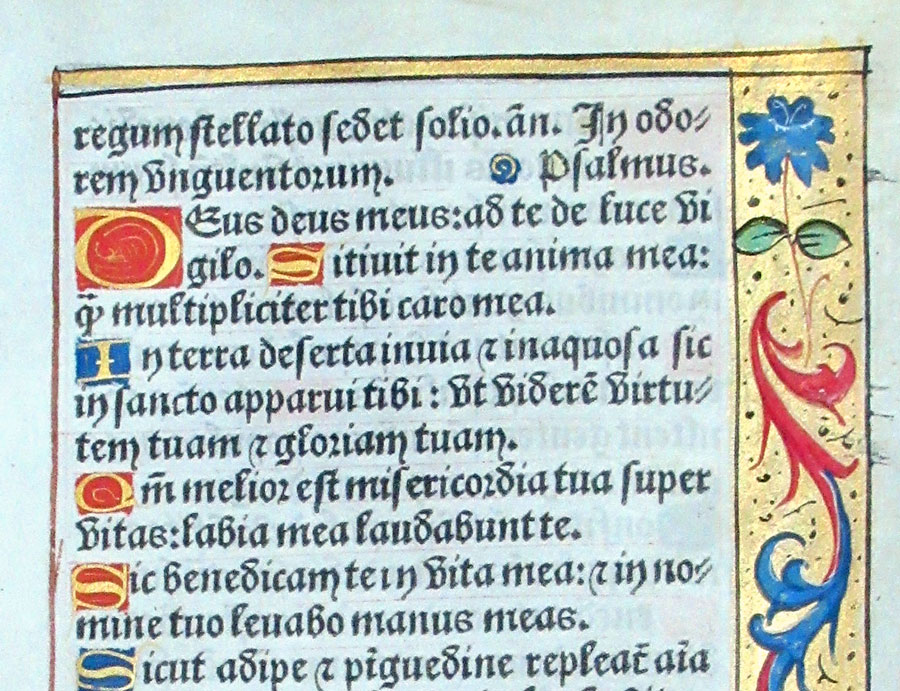 regum stellato sedet solio. añ. In odo⸗
rem vnguentorum. Psalmus.
DEus deus meus: ad te de luce vi
gilo. Sitiuit in te anima mea:
q̈ multipliciter tibi caro mea.
In terra deserta inuia ⁊ inaquosa sic
in sancto apparui tibi: vt viderē virtu⸗
tem tuam ⁊ gloriam tuam.
Qm̄ melior est misericordia tua super
vitas: labia mea laudabunt te.
Sic benedicam te in vita mea: ⁊ in no⸗
mine tuo leuabo manus meas.
Sicut adipe ⁊ pīguedine repleat̄ aīa